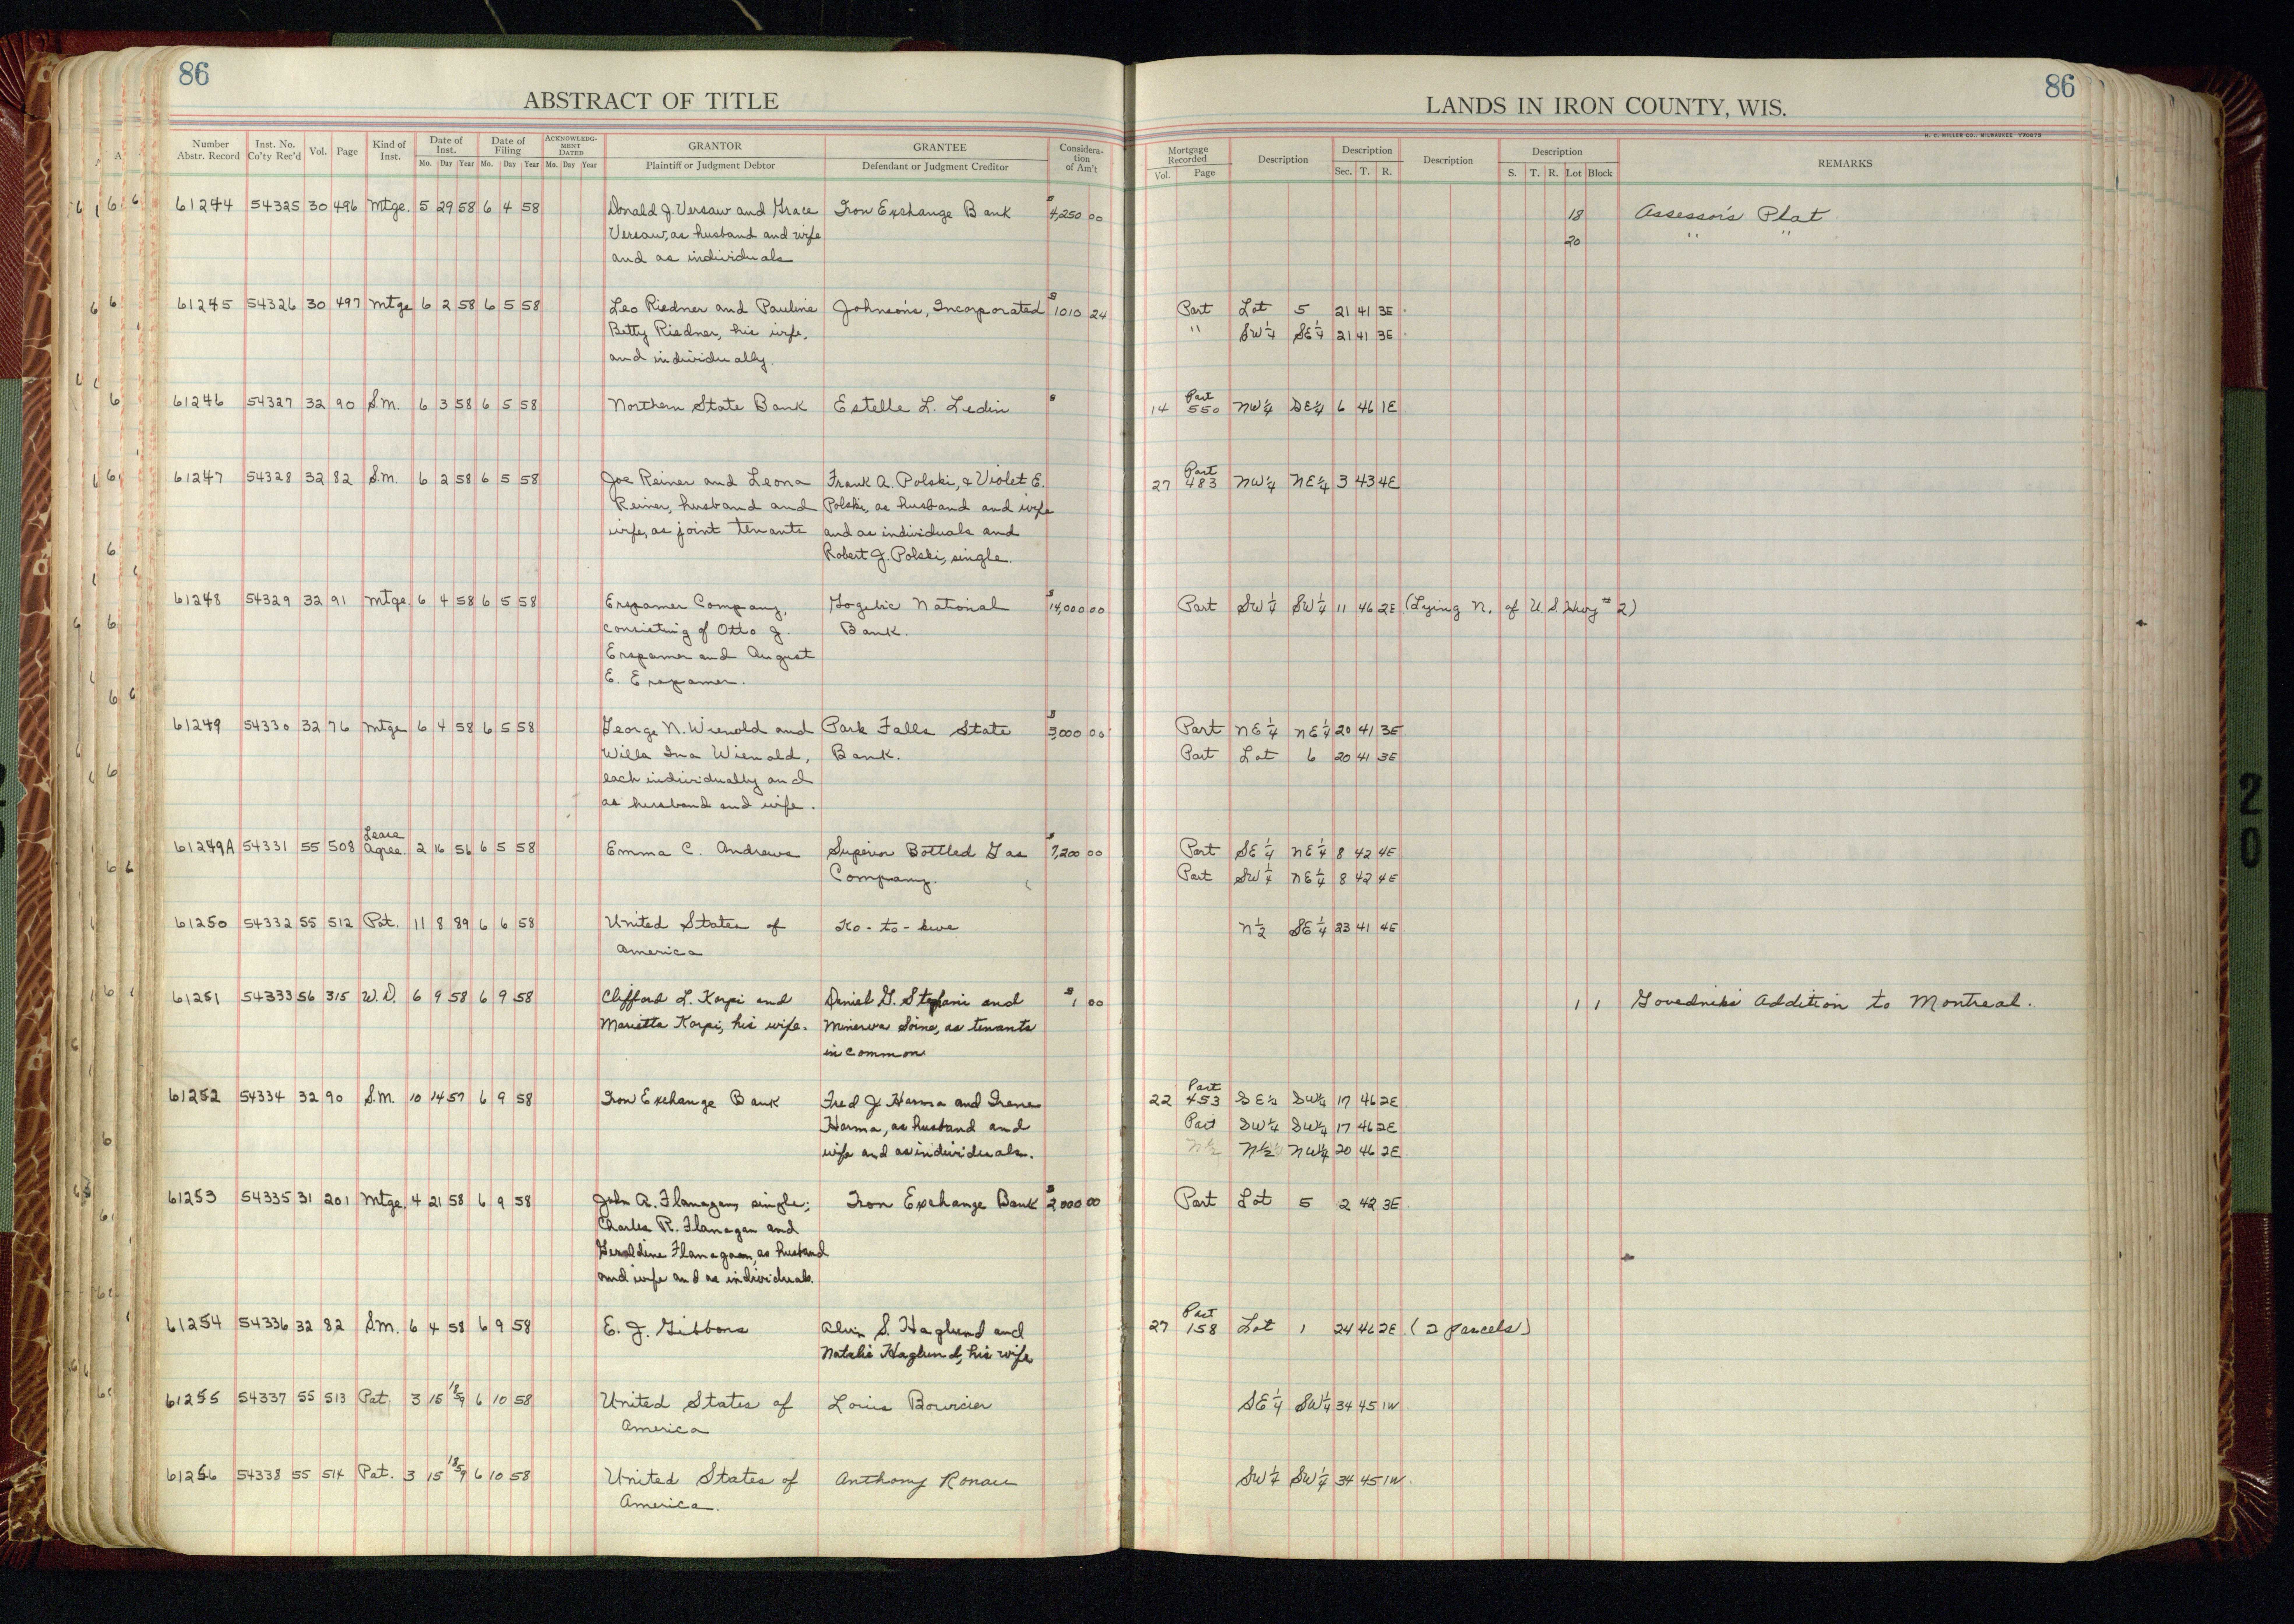 86
ABSTRACT OF TITLE
Number Abstr. Record Inst. No. Co'ty Rec'd Vol. Page Kind of Inst. Date of Inst. Mo. Day Year Date of Filing Mo. Day Year ACKNOWLEDGMENT DATED Mo. Day Year GRANTOR Plaintiff or Judgment Debtor GRANTEE Defendant or Judgment Creditor Consideration of Am't
61244 54325 30 496 Mtge. 5 29 58 6 4 58 Donald J. Versaw and Grace Iron Exchange Bank $4,250 00
Versaw, as husband and wife
and as individuals
61245 54326 30 497 Mtge 6 2 58 6 5 58 Leo Riedner and Pauline Johnson's, Incorporated $1010 24
Betty Riedner, his wife,
and individually.
61246 54327 32 90 S.M. 6 3 58 6 5 58 Northern State Bank Estelle L. Ledin $
61247 54328 32 82 S.M. 6 2 58 6 5 58 Joe Reiner and Leona Frank A. Polski, & Violet E.
Reiner, husband and Polski, as husband and wife
wife, as joint tenants and as individuals and
Robert J. Polski, single.
61248 54329 32 91 Mtge. 6 4 58 6 5 58 Erspamer Company, Gogebic National $14,000 00
consisting of Otto J. Bank.
Erspamer and August
E. Erspamer.
61249 54330 32 76 Mtge 6 4 58 6 5 58 George N. Wienold and Park Falls State $3,000 00
Willa Ina Wienold, Bank.
each individually and
as husband and wife.
61249A 54331 55 508 Lease Agree. 2 16 56 6 5 58 Emma C. Andrews Superior Bottled Gas $7,200 00
Company.
61250 54332 55 512 Pat. 11 8 89 6 6 58 United States of Ko-to-kwe
America
61251 54333 56 315 W.D. 6 9 58 6 9 58 Clifford L. Korpi and Daniel G. Stefani and $1 00
Marietta Korpi, his wife. Minerva Soine, as tenants
in common
61252 54334 32 90 S.M. 10 14 57 6 9 58 Iron Exchange Bank Fred J Harma and Irene
Harma, as husband and
wife and as individuals.
61253 54335 31 201 Mtge. 4 21 58 6 9 58 John A. Flanagan, single; Iron Exchange Bank $2,000 00
Charles R. Flanagan and
Geraldine Flanagan, as husband
and wife and as individuals.
61254 54336 32 82 S.M. 6 4 58 6 9 58 E. J. Gibbons Alvin S. Haglund and
Natalie Haglund, his wife
61255 54337 55 513 Pat. 3 15 1859 6 10 58 United States of Louis Bouvier
America
61256 54338 55 514 Pat. 3 15 1859 6 10 58 United States of Anthony
America.
86
LANDS IN IRON COUNTY, WIS.
H. C. MILLER CO., MILWAUKEE
Mortgage Recorded Vol. Page Description Description Sec. T. R. Description Description S. T. R. Lot Block REMARKS
18 Assessor's Plat
20 " "
Part Lot 5 21 41 3E
" SW¼ SE¼ 21 41 3E
14 Part 550 NW¼ SE¼ 6 46 1E
27 Part 483 NW¼ NE¼ 3 43 4E
Part SW¼ SW¼ 11 46 2E (Lying N. of U.S. Hwy # 2)
Part NE¼ NE¼ 20 41 3E
Part Lot 6 20 41 3E
Part SE¼ NE¼ 8 42 4E
Part SW¼ NE¼ 8 42 4E
N½ SE¼ 23 41 4E
1 1 Govednik's Addition to Montreal.
22 Part 453 SE¼ SW¼ 17 46 2E
Part SW¼ SW¼ 17 46 2E
N½ N½ NW¼ 20 46 2E
Part Lot 5 2 42 3E
27 Part 158 Lot 1 24 46 2E (2 parcels)
SE¼ SW¼ 34 45 1W
SW¼ SW¼ 34 45 1W
20